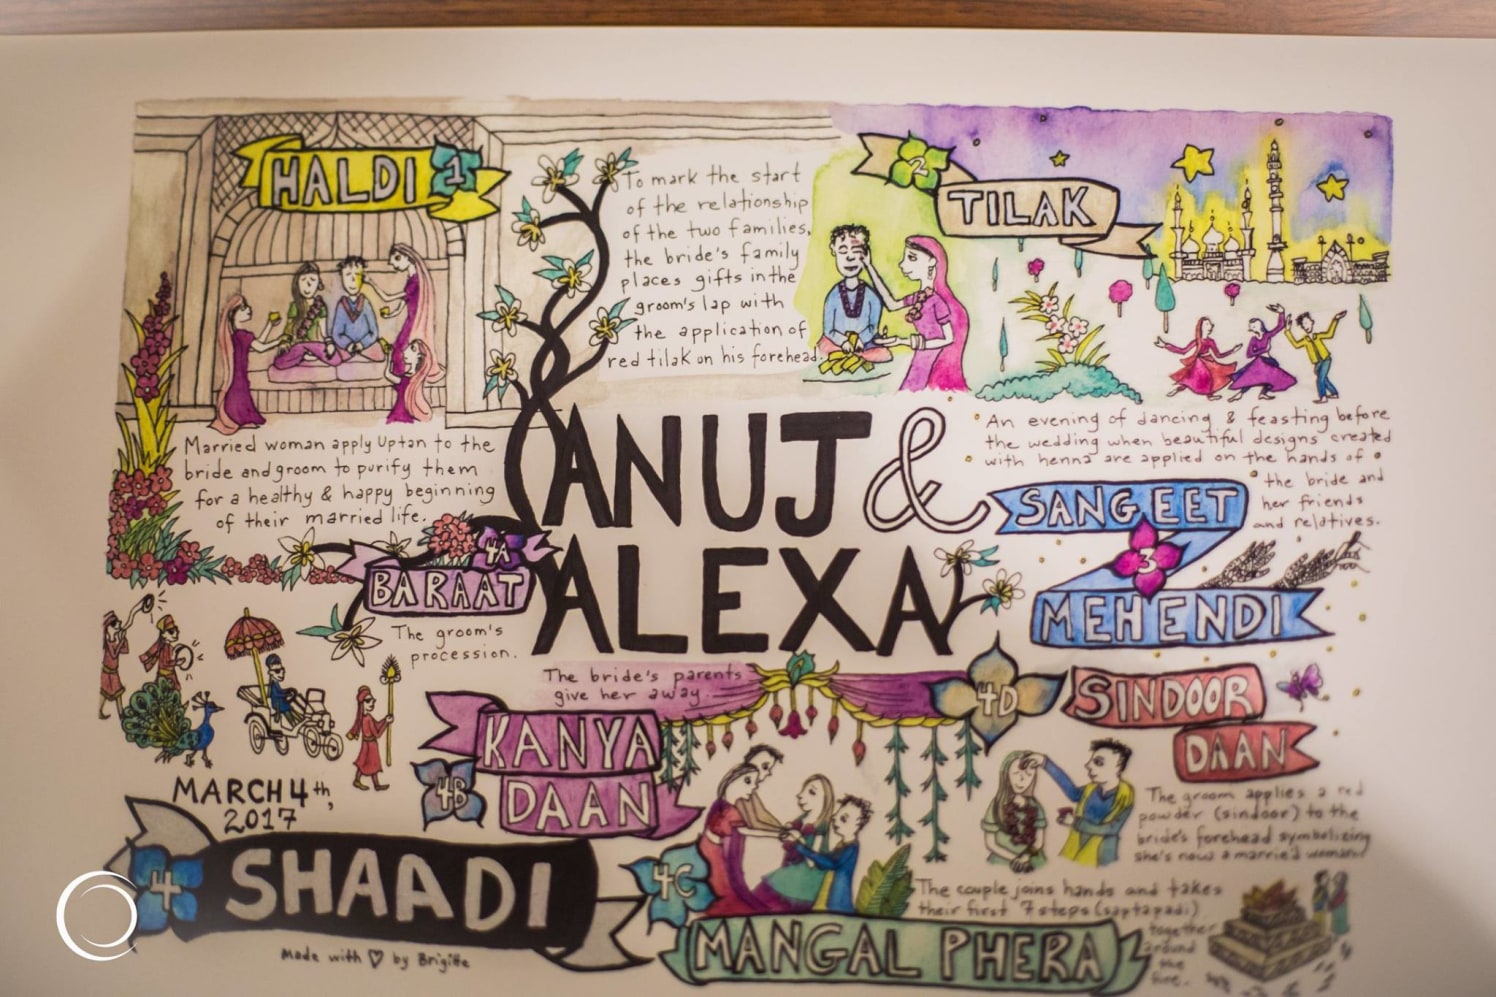 HALDI 1
Married woman apply Uptan to the
bride and groom to purify them
for a healthy & happy beginning
of their married life.
To mark the start
of the relationship
of the two families,
the bride's family
places gifts in the
groom's lap with
the application of
red tilak on his forehead.
2
TILAK
ANUJ &
ALEXA
An evening of dancing & feasting before
the wedding when beautiful designs created
with henna are applied on the hands of
the bride and
her friends
and relatives.
SANGEET
3
MEHENDI
4A
BARAAT
The groom's
procession.
The bride's parents
give her away.
KANYA
4B DAAN
4D SINDOOR
DAAN
The groom applies a red
powder (sindoor) to the
bride's forehead symbolizing
she's now a married woman.
MARCH 4th,
2017
4 SHAADI
Made with ♡ by Brigitte
4C
MANGAL PHERA
The couple joins hands and takes
their first 7 steps (saptapadi)
together
around
the
fire.